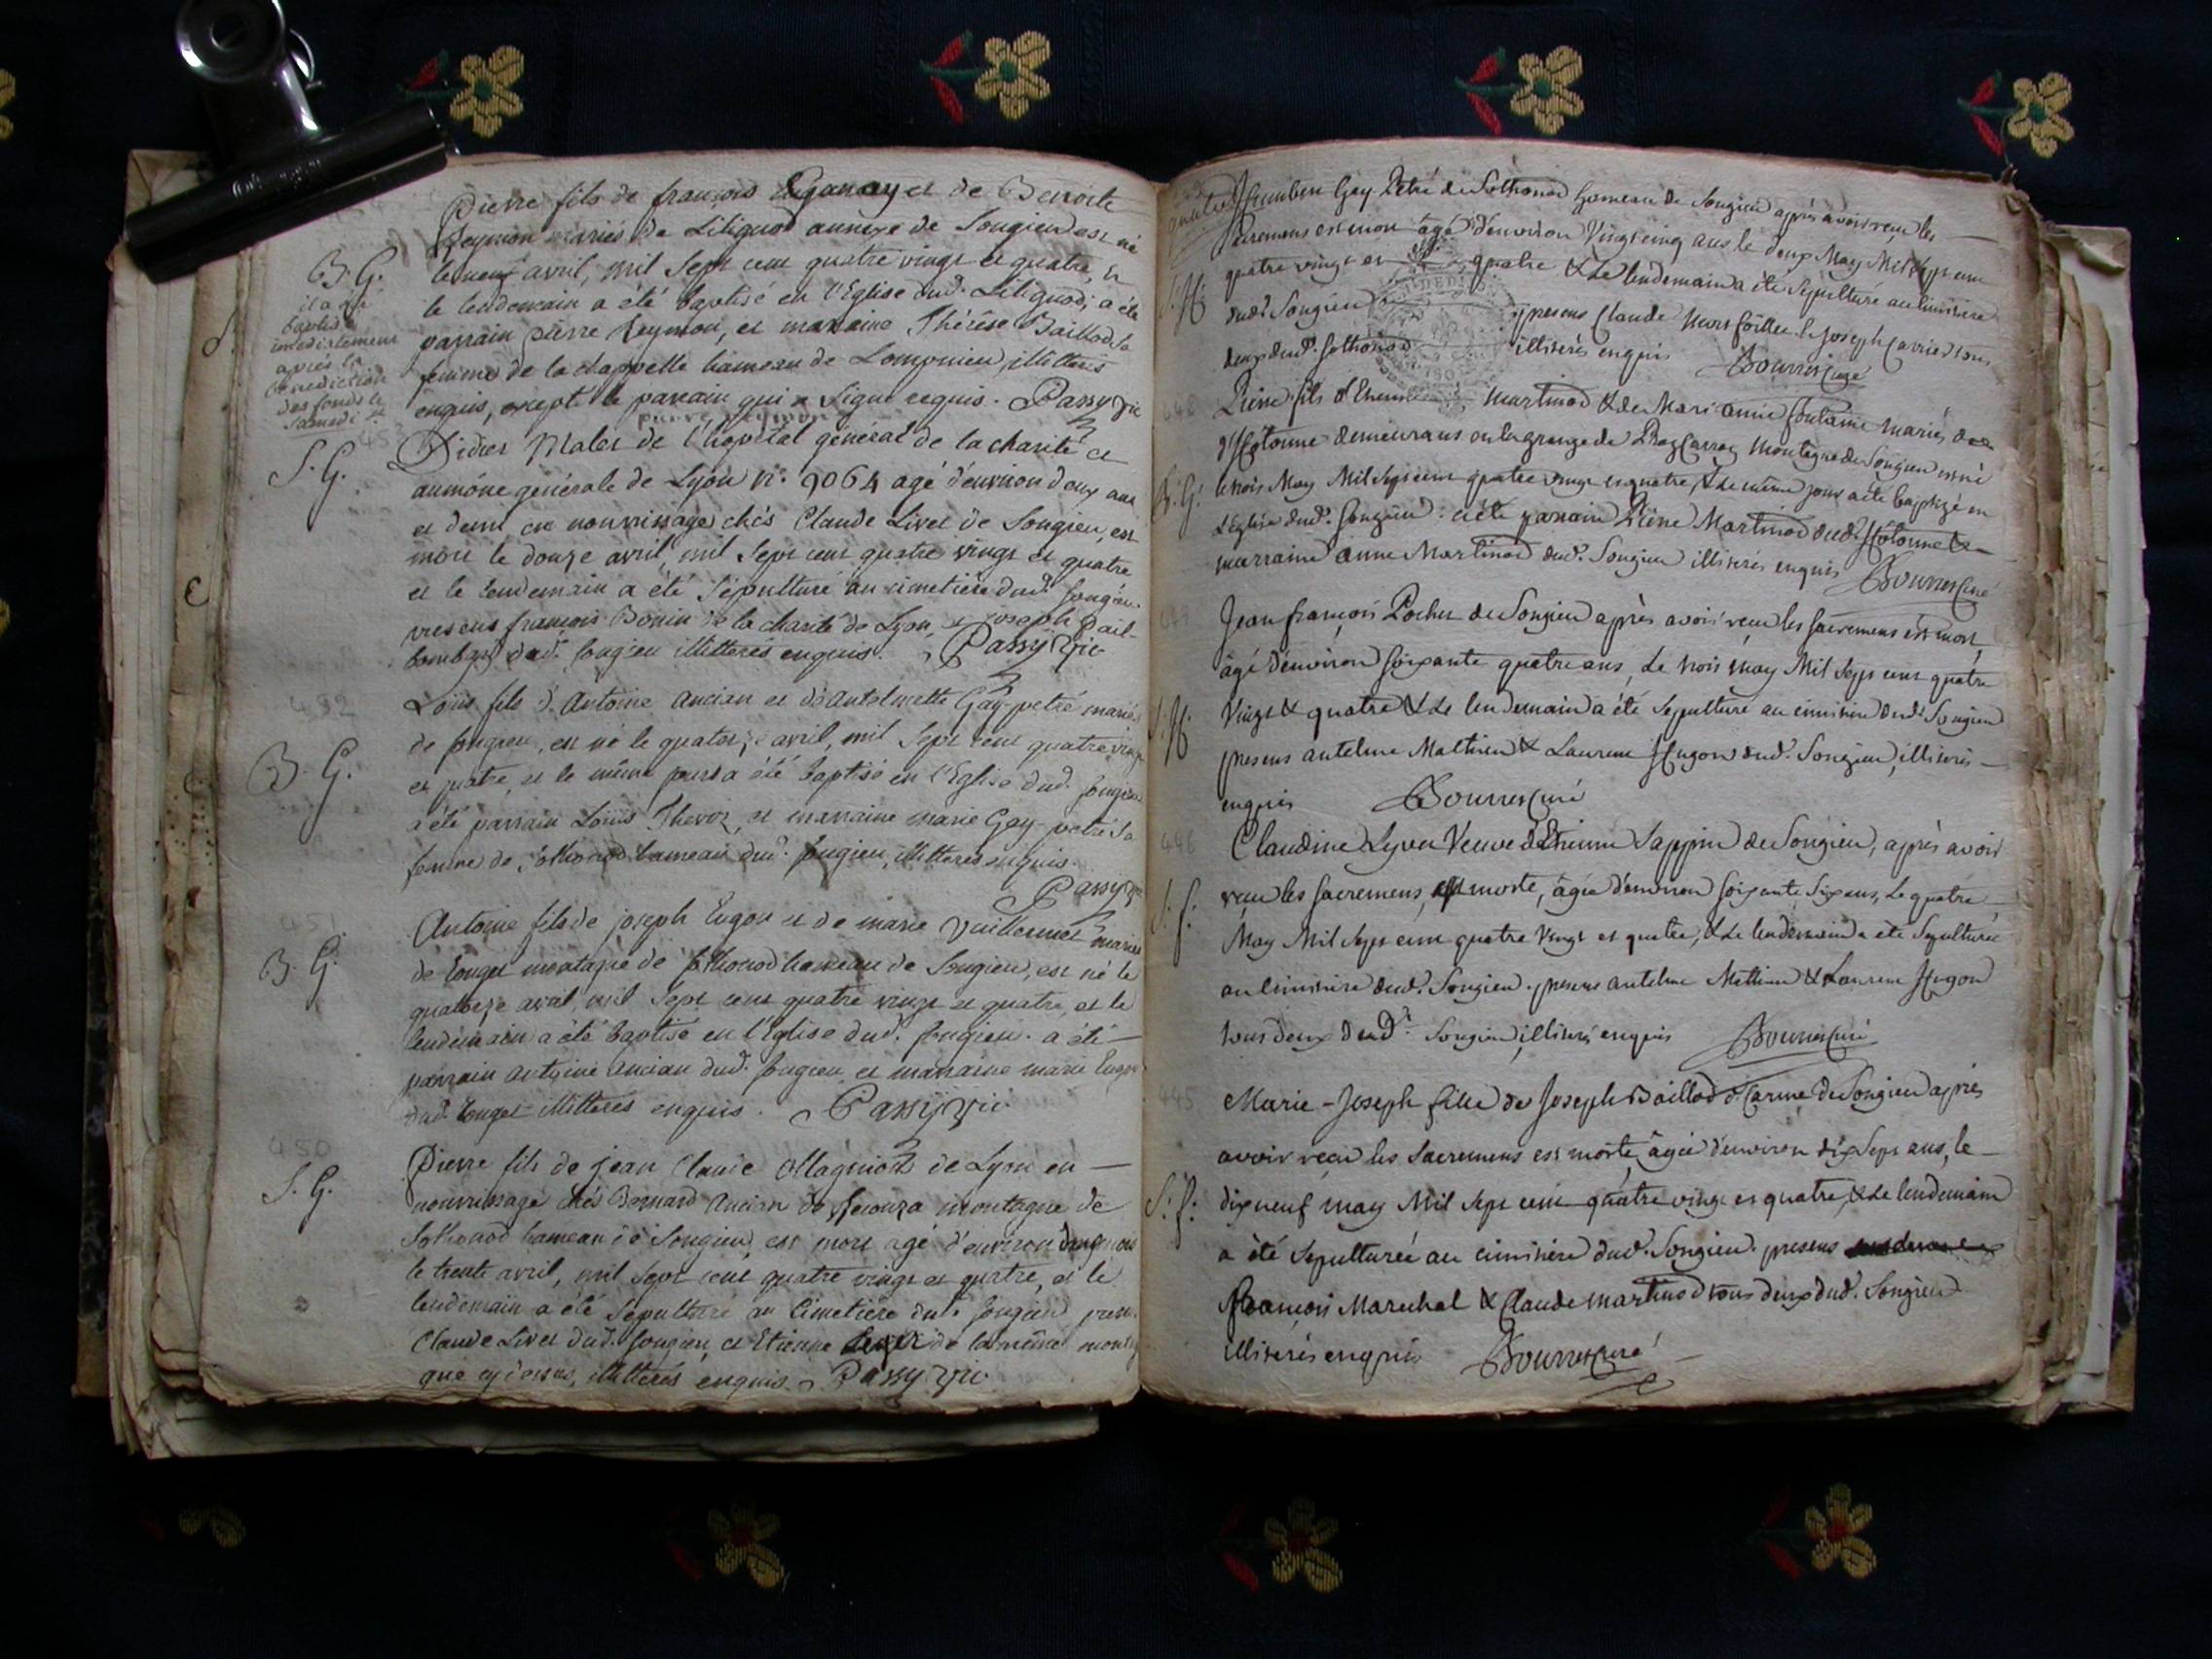 Pierre fils de françois Eganay et de Benoite
Reymon mariés de Litignod annexe de Songieu est né
le neuf avril, mil sept cent quatre vingt et quatre, et
le lendemain a été baptisé en l'Eglise dud. Litignod; a été
parrain pierre Reymon, et marraine Thérêse Baillod sa
femme de la chappelle hameau de Lompnieu, illitteres
enquis, excepté le parrain qui a signé requis. Passy vic
pierre reymon
B. G.
il a été
baptisé
imediatement
après la
benediction
des fonds le
samedi St
S. G.
Didier Malet de l'hopital général de la charité et
aumône generale de Lyon n. 9064 agé d'environ deux ans
et demi en nourrissage chés Claude Livet de Songieu, est
mort le douze avril, mil sept cent quatre vingt et quatre
et le lendemain a été sépulturé au cimetière dud. songieu.
presens françois Bonin de la charité de Lyon, et joseph
dud. songieu illitterés enquis. Passy vic
452
B. G.
Loüis fils d'Antoine Ancian et d'Antelmette Gay-petré mariés
de songieu, est né le quatorze avril, mil sept cent quatre vingt
et quatre, et le même jour a été baptisé en l'Eglise dud. songieu
a été parrain Loüis Thevoz, et marraine marie Gay-petré sa
femme de sothonod hameau dud. songieu, illitteres enquis.
Passy vic
451
B. G.
Antoine fils de joseph Eugon et de marie Vuillermet mariés
de montagne de sothonod hameau de Songieu, est né le
quatorze avril, mil sept cent quatre vingt et quatre, et le
lendemain a été baptisé en l'Eglise dud. songieu. a été
parrain antoine ancian dud. songieu, et marraine marie
dud. illitterés enquis. Passy vic
450
S. G.
Pierre fils de jean Claude de Lyon en
nourrissage chés Bernard Ancian de montagne de
Sothonod hameau de Songieu, est mort agé d'environ mois
le trente avril, mil sept cent quatre vingt et quatre, et le
lendemain a été sépulturé au cimetière dud. songieu, presens
Claude Livet dud. songieu, et Etienne de la même
que cy dessus, illitterés enquis. Passy vic
Humbert Gay Petré de Sothonod hameau de Songieu après avoir reçu les
sacremens est mort agé d'environ Vingt cinq ans le deux May Mil sept cent
quatre vingt et quatre & Le lendemain a été sépulturé au cimitière
dud. Songieu presens Claude & Joseph Carrier tous
deux dud. Sothonod illiterés enquis Bourrer Curé
B. G.
Pierre fils d'Etienne Martinod & de Mari anne fontaine mariés
d'Hotonne demeurans en la grange de montagne de Songieu est né
le trois May Mil sept cent quatre vingt et quatre, & Le même jour a été baptizé en
L'Eglise dud. Songieu : a été parrain Pierre Martinod dud. Hotonne &
marraine anne Martinod dud. Songieu illiterés enquis Bourrer Curé
S. H.
Jean françois Pochet de Songieu après avoir reçu les sacremens est mort,
âgé d'environ soixante quatre ans, Le trois may Mil sept cent quatre
Vingt & quatre & Le lendemain a été sépulturé au cimitière dud. Songieu
presens antelme Mathieu & Laurent Hugon dud. Songieu, illiterés
enquis Bourrer Curé
446
S. f.
Claudine Lyvet Veuve d'Etienne Sappin de Songieu, après avoir
reçu les sacremens, est morte, âgée d'environ soixante six ans, Le quatre
May Mil sept cent quatre Vingt et quatre, & Le lendemain a été sépulturée
au cimitière dud. Songieu. presens antelme Mathieu & Laurent Hugon
tous deux dud. Songieu illiterés enquis Bourrer Curé
445
S. f.
Marie-Joseph fille de Joseph Baillod de Songieu après
avoir reçu les sacremens est morte, âgée d'environ dix sept ans, le
dix neuf may Mil sept cent quatre vingt et quatre, & Le lendemain
a été sépulturée au cimitière dud. Songieu. presens
françois Marechal & Claude martinod tous deux dud. Songieu
illiterés enquis Bourrer Curé